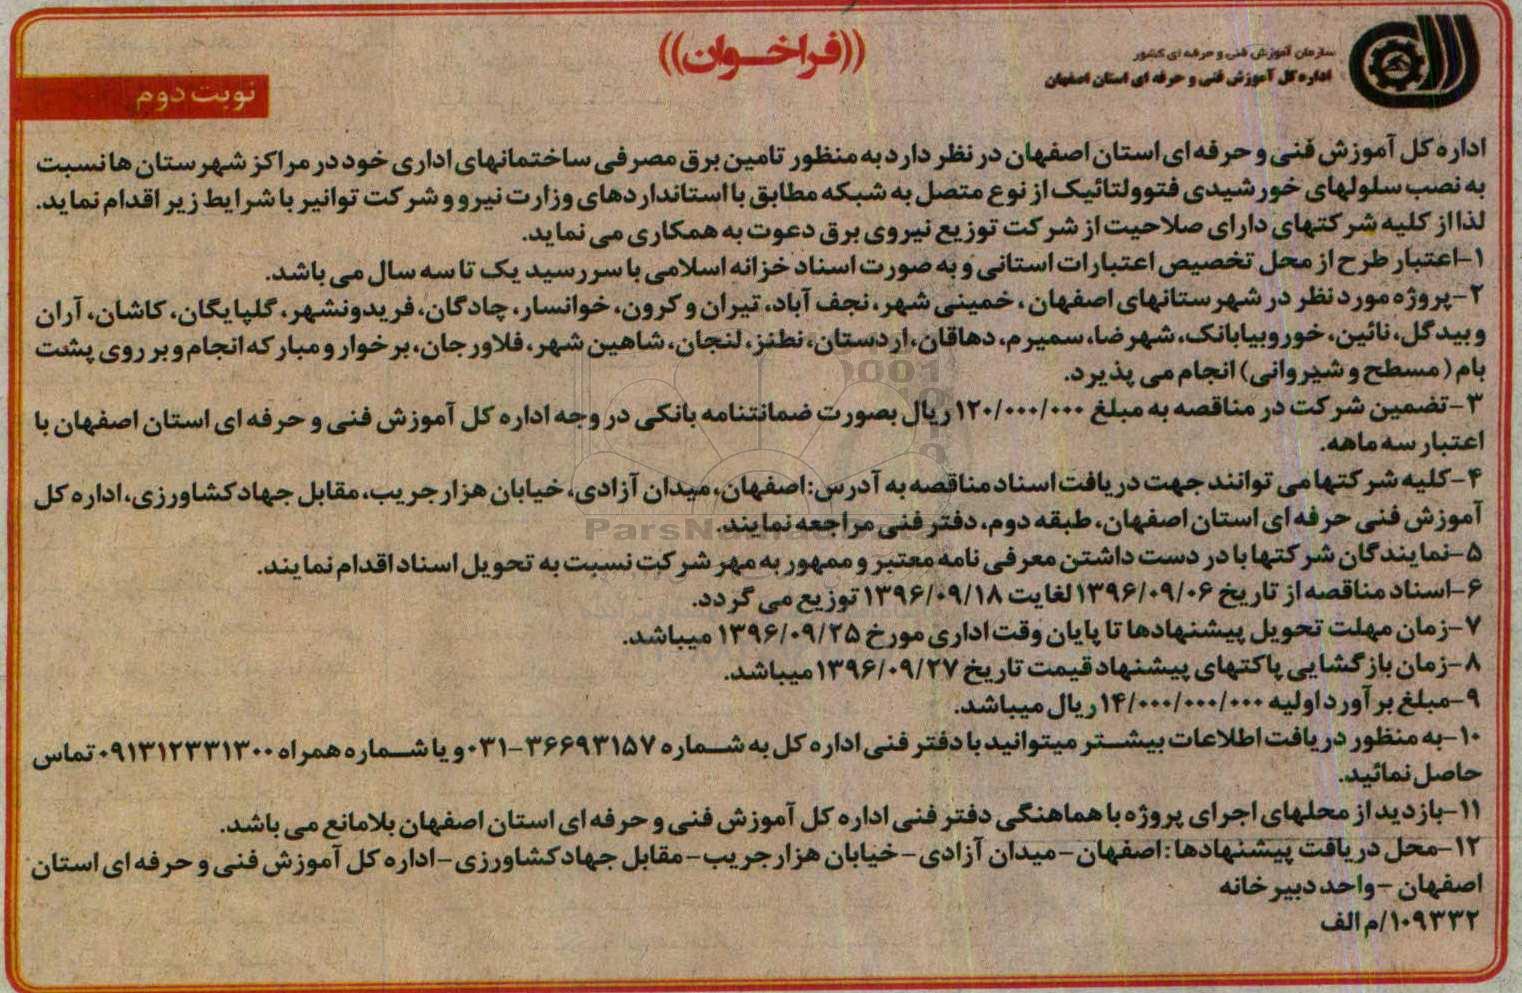 سازمان آموزش فنی و حرفه ای کشور
اداره کل آموزش فنی و حرفه ای استان اصفهان
((فراخوان))
نوبت دوم
اداره کل آموزش فنی و حرفه ای استان اصفهان در نظر دارد به منظور تامین برق مصرفی ساختمانهای اداری خود در مراکز شهرستان ها نسبت
به نصب سلولهای خورشیدی فتوولتائیک از نوع متصل به شبکه مطابق با استانداردهای وزارت نیرو و شرکت توانیر با شرایط زیر اقدام نماید.
لذا از کلیه شرکتهای دارای صلاحیت از شرکت توزیع نیروی برق دعوت به همکاری می نماید.
۱-اعتبار طرح از محل تخصیص اعتبارات استانی و به صورت اسناد خزانه اسلامی با سررسید یک تا سه سال می باشد.
۲-پروژه مورد نظر در شهرستانهای اصفهان ، خمینی شهر، نجف آباد، تیران و کرون، خوانسار، چادگان، فریدونشهر، گلپایگان، کاشان، آران
و بیدگل، نائین، خور وبیابانک، شهرضا، سمیرم، دهاقان، اردستان، نطنز، لنجان، شاهین شهر، فلاورجان، برخوار و مبارکه انجام و بر روی پشت
بام (مسطح و شیروانی) انجام می پذیرد.
۳-تضمین شرکت در مناقصه به مبلغ ۱۲۰/۰۰۰/۰۰۰ ریال بصورت ضمانتنامه بانکی در وجه اداره کل آموزش فنی و حرفه ای استان اصفهان با
اعتبار سه ماهه.
۴-کلیه شرکتها می توانند جهت دریافت اسناد مناقصه به آدرس: اصفهان، میدان آزادی، خیابان هزار جریب، مقابل جهاد کشاورزی، اداره کل
آموزش فنی حرفه ای استان اصفهان، طبقه دوم، دفتر فنی مراجعه نمایند.
ParsNamadData
۵-نمایندگان شرکتها با در دست داشتن معرفی نامه معتبر و ممهور به مهر شرکت نسبت به تحویل اسناد اقدام نمایند.
۶-اسناد مناقصه از تاریخ ۱۳۹۶/۰۹/۰۶ لغایت ۱۳۹۶/۰۹/۱۸ توزیع می گردد.
۷-زمان مهلت تحویل پیشنهادها تا پایان وقت اداری مورخ ۱۳۹۶/۰۹/۲۵ میباشد.
۸-زمان بازگشایی پاکتهای پیشنهاد قیمت تاریخ ۱۳۹۶/۰۹/۲۷ میباشد.
۹-مبلغ برآورد اولیه ۱۴/۰۰۰/۰۰۰/۰۰۰ ریال میباشد.
۱۰-به منظور دریافت اطلاعات بیشتر میتوانید با دفتر فنی اداره کل به شماره ۳۶۶۹۳۱۵۷-۰۳۱ و یا شماره همراه ۰۹۱۳۱۲۳۳۱۳۰۰ تماس
حاصل نمائید.
۱۱-بازدید از محلهای اجرای پروژه با هماهنگی دفتر فنی اداره کل آموزش فنی و حرفه ای استان اصفهان بلامانع می باشد.
۱۲-محل دریافت پیشنهادها : اصفهان - میدان آزادی - خیابان هزار جریب - مقابل جهاد کشاورزی - اداره کل آموزش فنی و حرفه ای استان
اصفهان - واحد دبیرخانه
۱۰۹۳۳۲/م الف